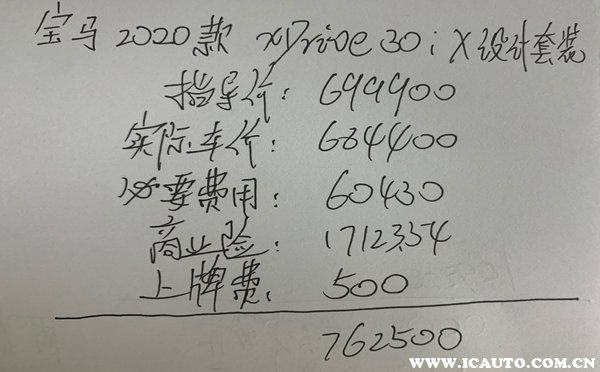 宝马2020款 xDrive30i X设计套装
指导价: 699900
实际车价: 684400
必要费用: 60430
商业险: 17123.54
上牌费: 500
762500
WWW.ICAUTO.COM.CN